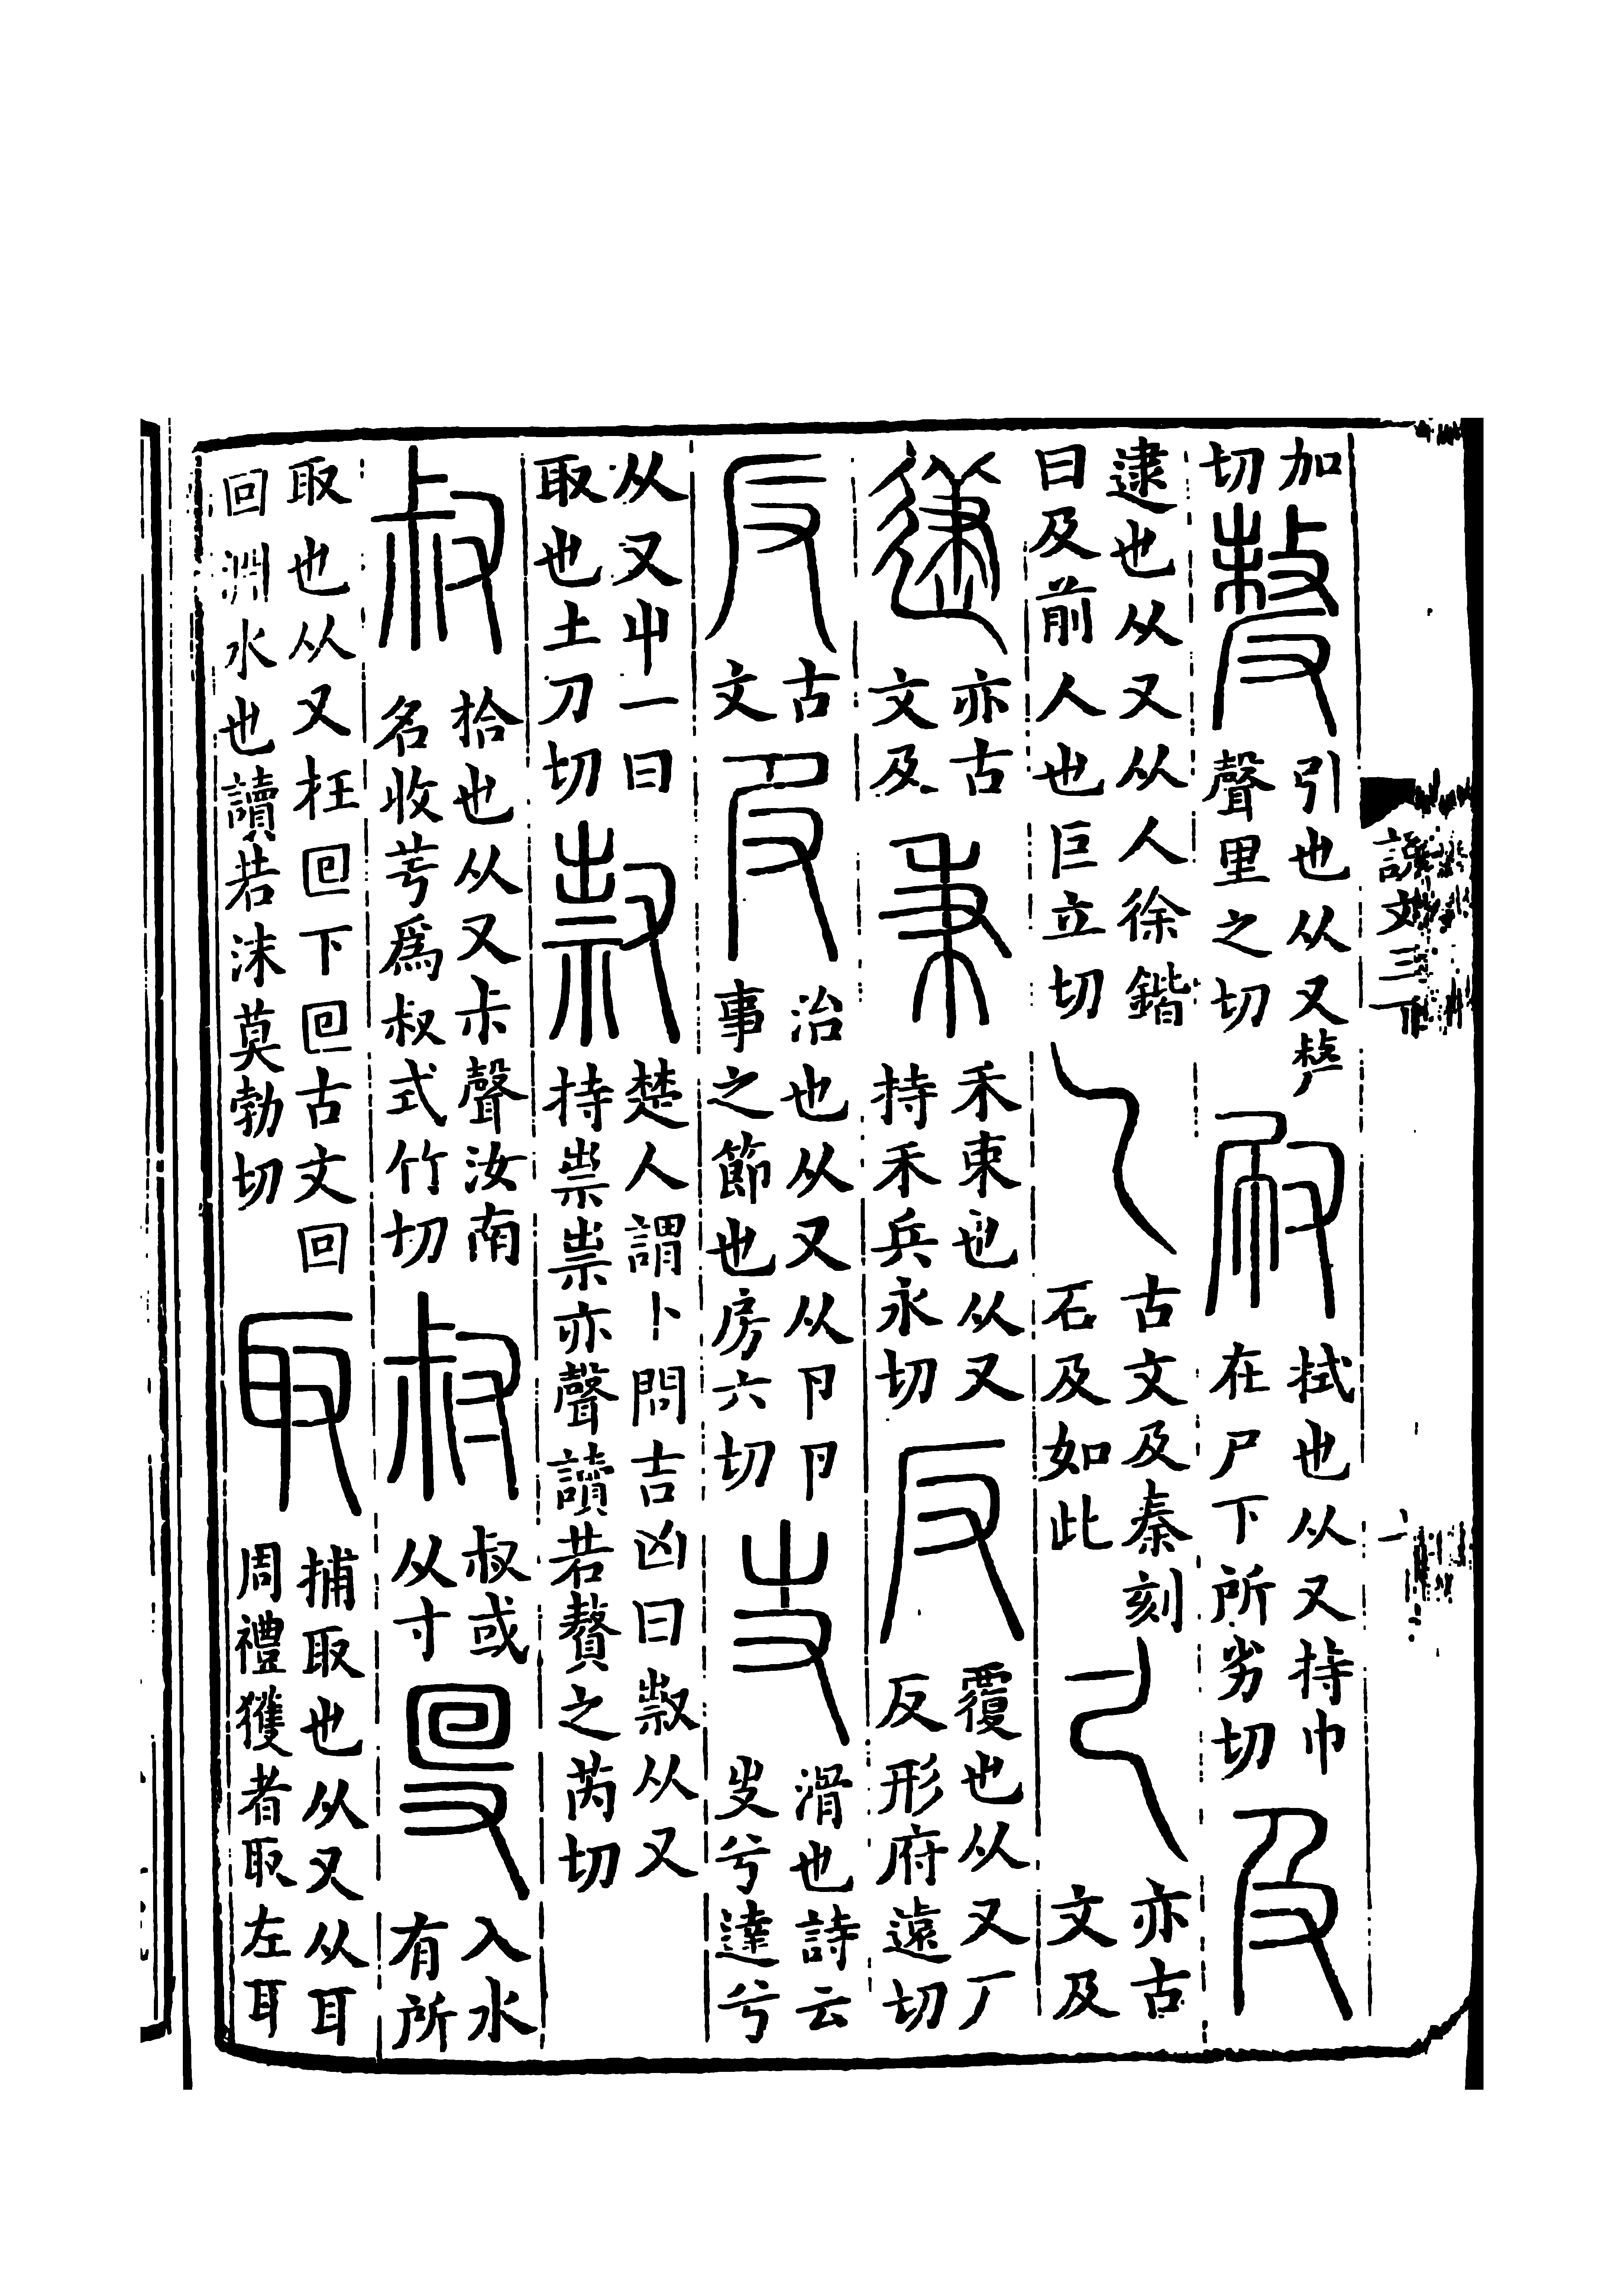 説文三下
加切𠭰引也从又𠩺聲里之切㕞拭也从又持巾在尸下所劣切及
逮也从又从人徐鍇曰及前人也巨立切乁古文及秦刻石及如此𢎜亦古文及
𨖻亦古文及秉禾束也从又持禾兵永切反覆也从又厂反形府遠切
𠬡古文𠬝治也从又从卪卪事之節也房六切𠬢滑也詩云𠬢兮達兮
从又屮一曰取也土刀切𣀔楚人謂卜問吉凶曰𣀔从又持祟祟亦聲讀若贅之芮切
叔拾也从又尗聲汝南名收芌爲叔式竹切𡬧叔或从寸𠬸入水有所
取也从又枉囘下囘古文回回淵水也讀若沫莫勃切取捕取也从又从耳周禮獲者取左耳